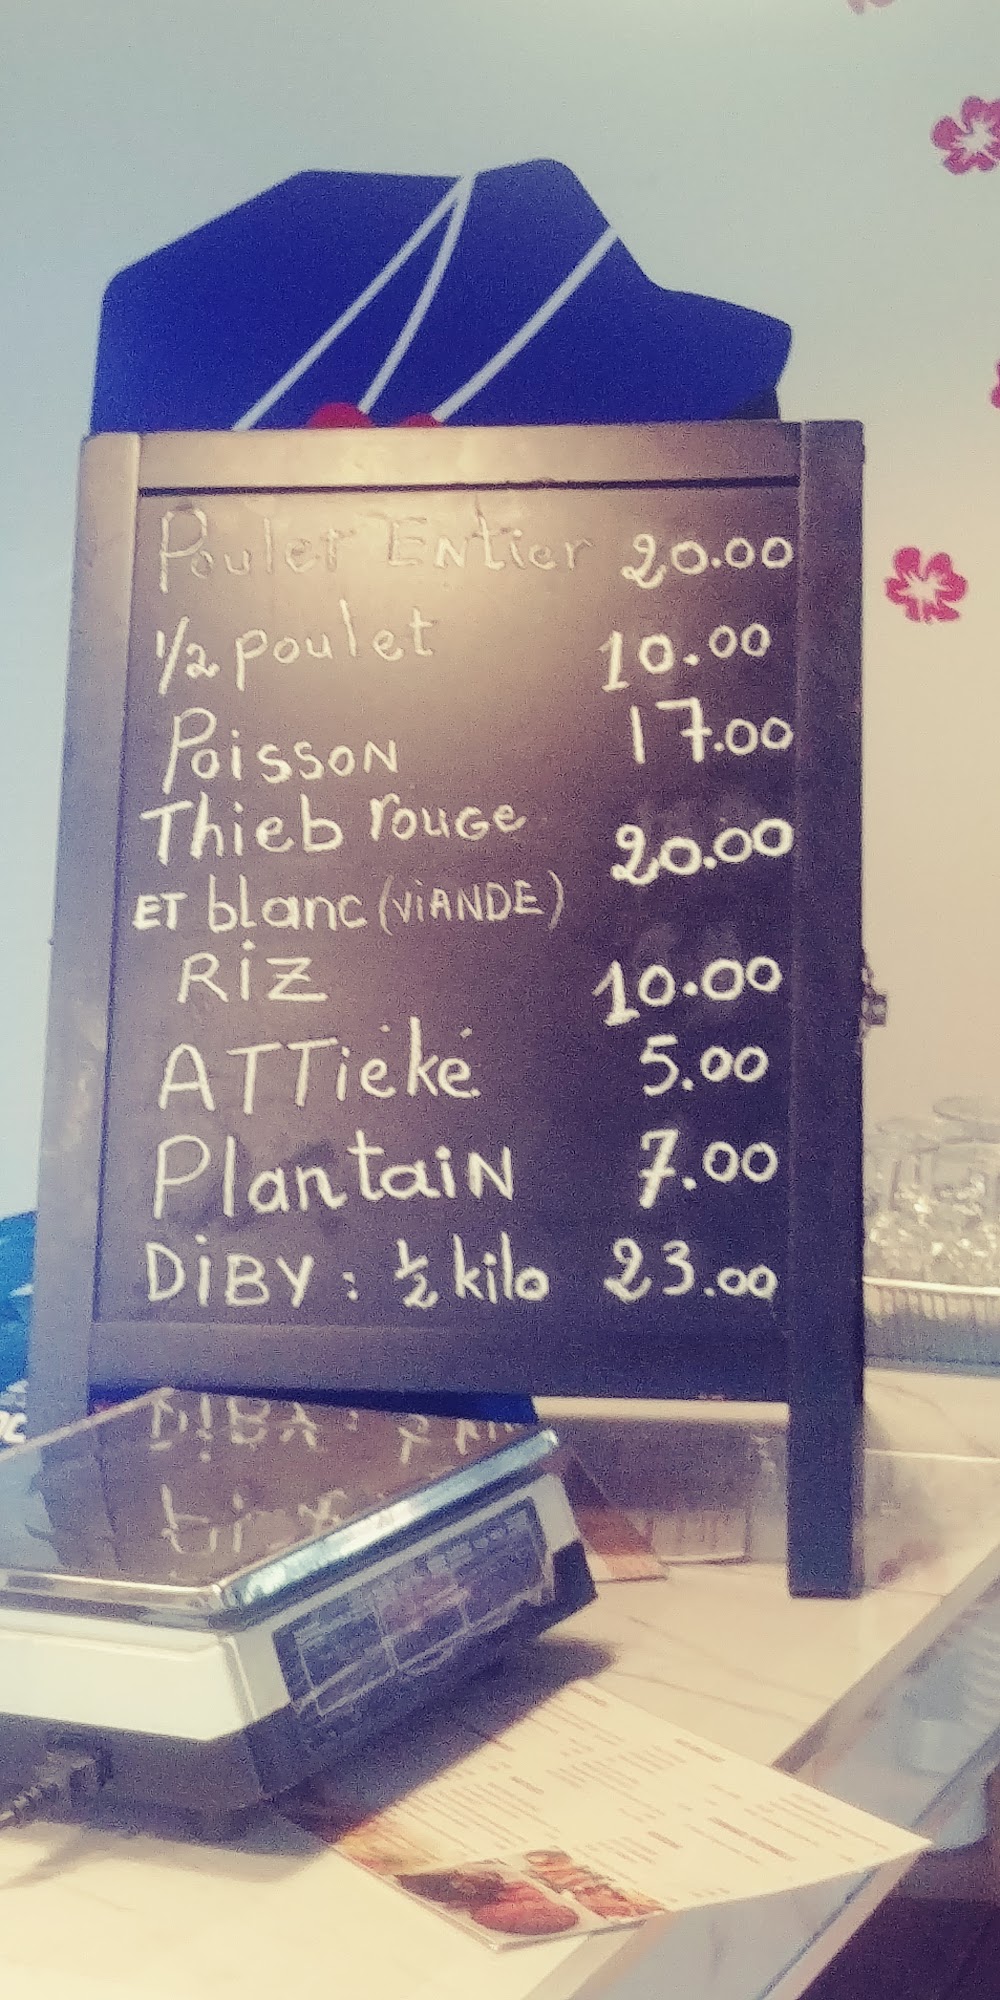 Poulet Entier 20.00
1/2 poulet 10.00
Poisson 17.00
Thieb rouge
ET blanc (VIANDE) 20.00
RIZ 10.00
ATTiéké 5.00
Plantain 7.00
DiBY : 1/2 kilo 23.00